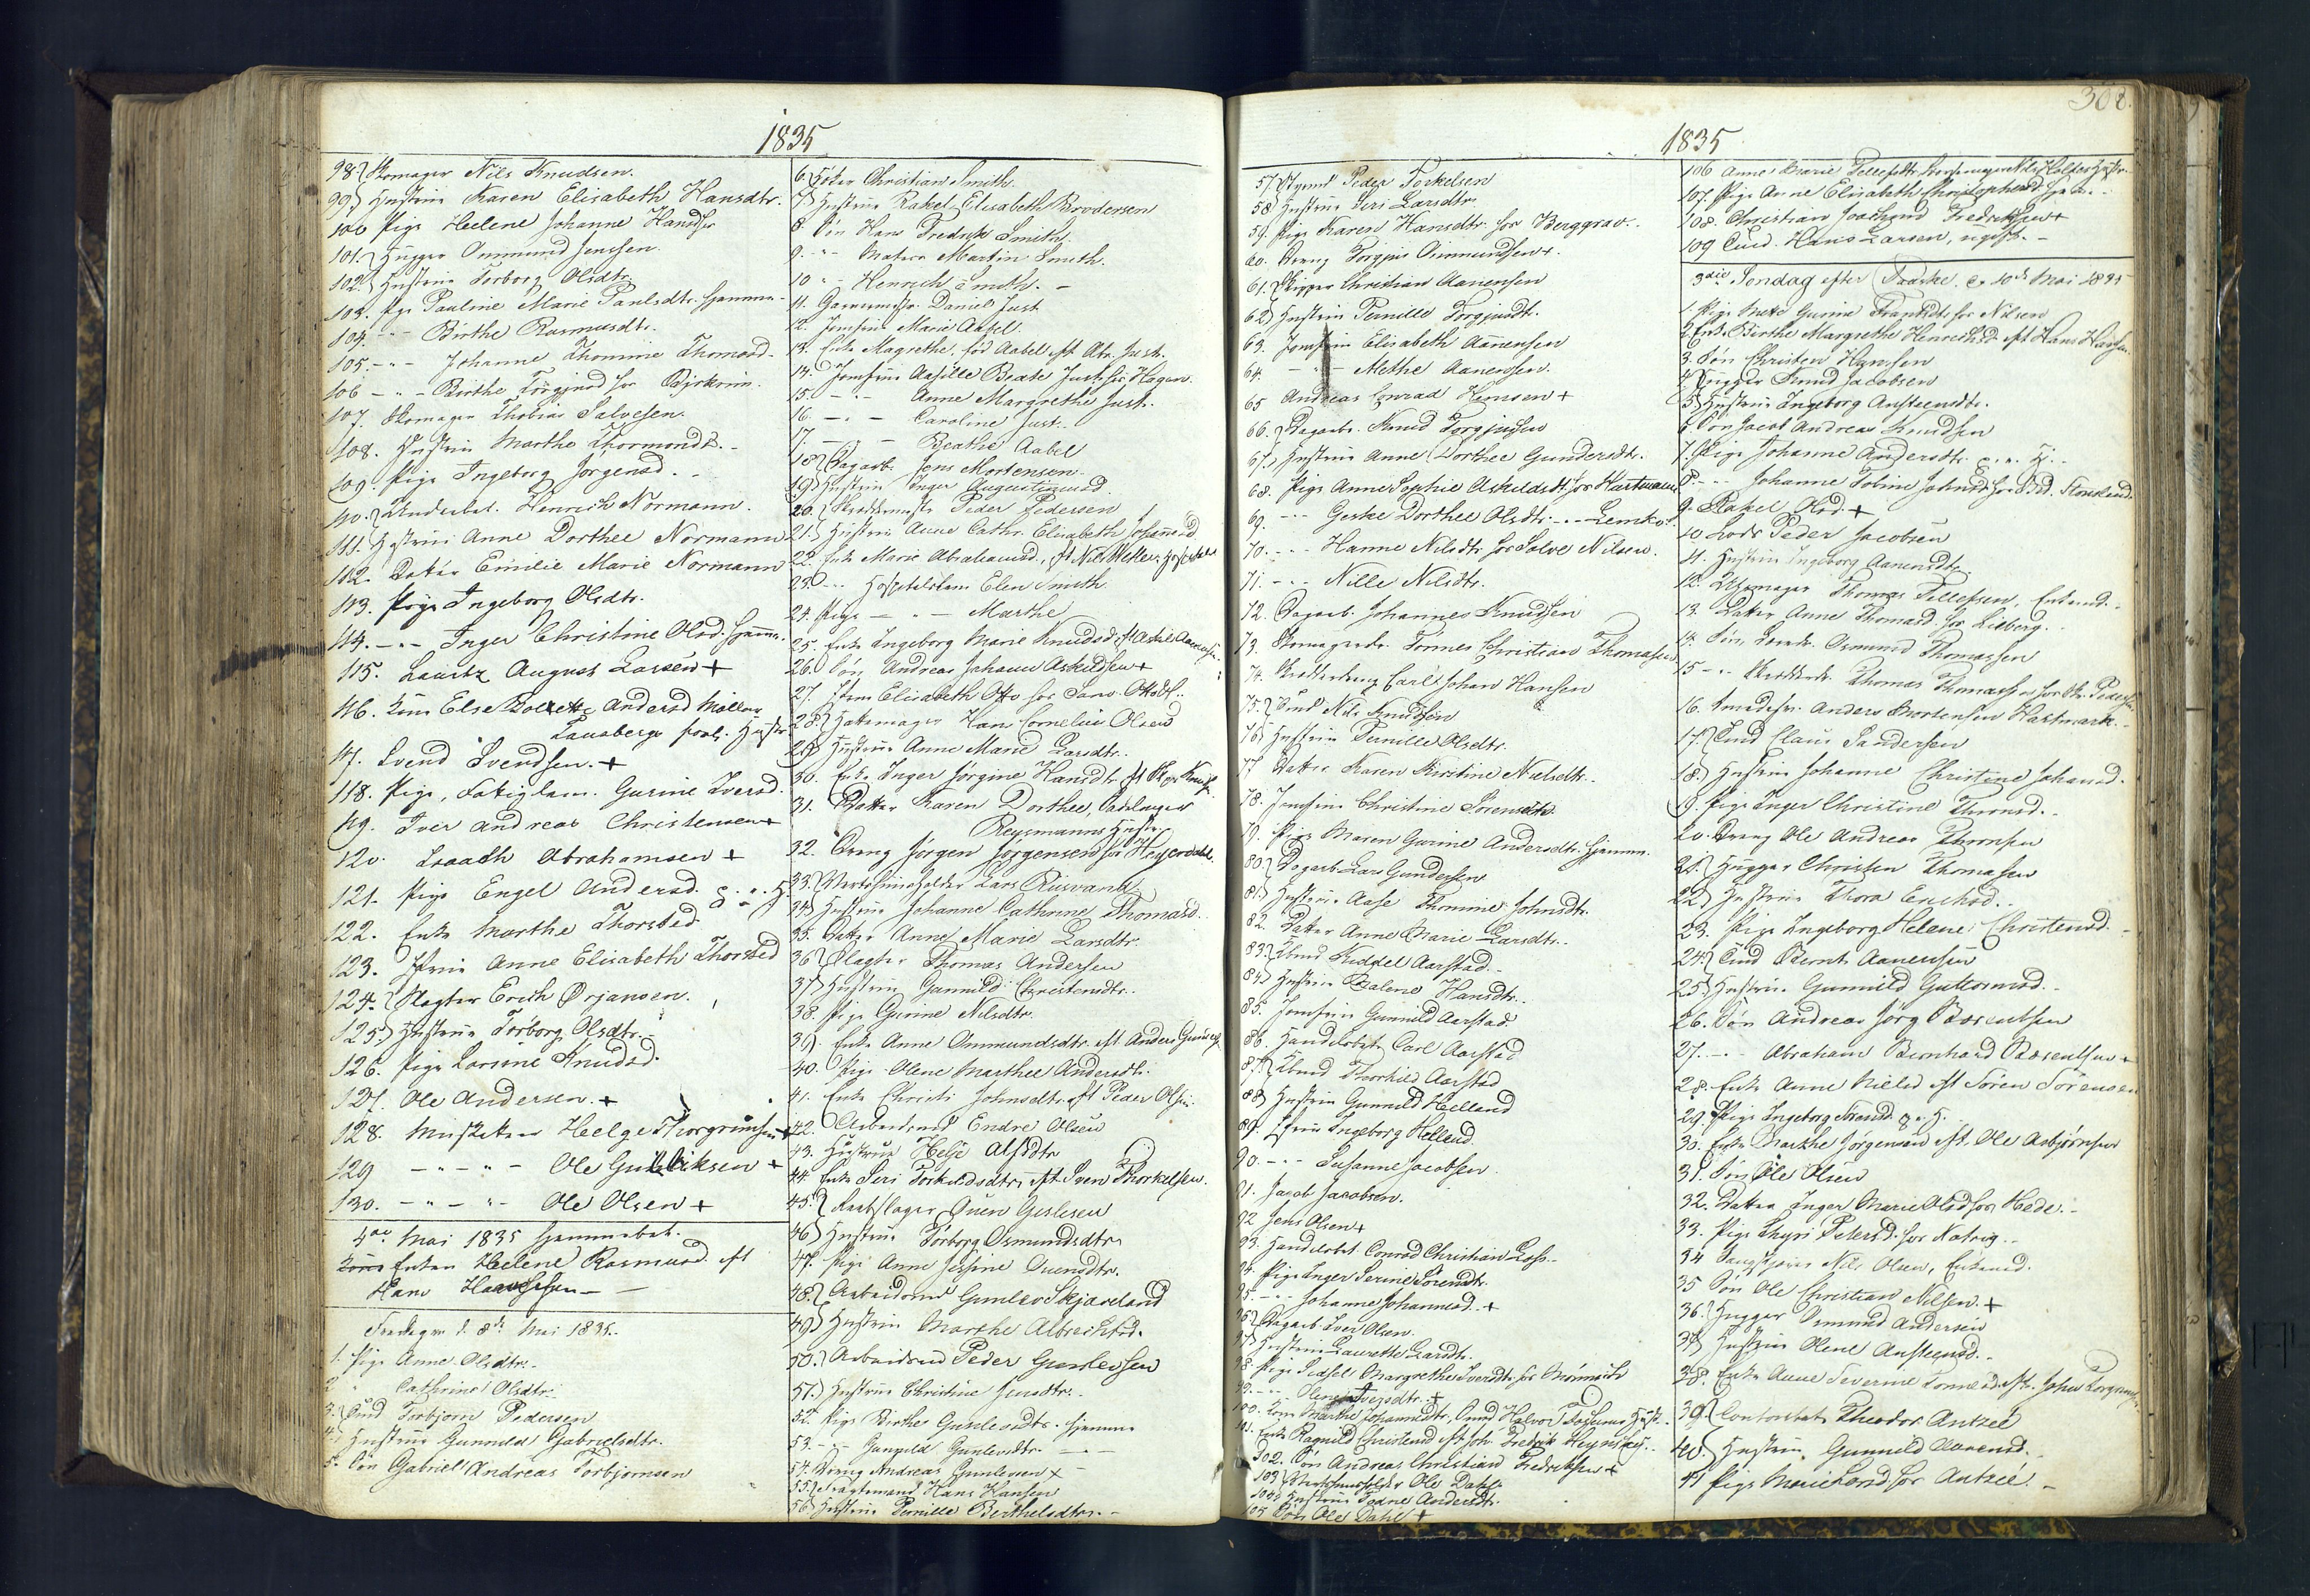 1835
98. Skomager Nils Knudsen.
99. Hustrue Karen Elisabeth Hansdtr.
100 Pige Helene Johanne Hansdtr
101. Hugger Ommund Jensen.
102. Hustrue Torborg Olsdtr.
103. Pige Pauline Marie Paulsdtr. hjemme
104. -"- Birthe Rasmusdtr.
105. -"- Johanne Thomine Thomasd.
106 -"- Birthe Torgjusd for Bjerkrim.
107. Skomager Thobias Salvesen.
108. Hustrue Marthe Thormondsd.
109. Pige Ingeborg Jørgensd.
110. Henrich Normann.
111. Hustrue Anne Dorthee Normann
112. Datter Emilie Marie Normann
113. Pige Ingeborg Olsdtr.
114. -"- Inger Christine Olsd. hjemme.
115. Lauritz August Larsen +
116. Else Andersd Møller
Hustr.
117. Svend Svendsen. +
118. Pige, Fattiglem. Gurine Iversd.
119. Iver Andreas Christensen +
120. Isaach Abrahamsen +
121. Pige Engel Andersd.
122. Enke Marthe Thorsted
123. Jfrue Anne Elisabeth Thorsted
124. Slagter Erich Ørjansen.
125. Hustrue Torborg Olsdtr.
126. Pige Larsine Knudsd.
127. Ole Andersen. +
128. Musketeer Helge Thorgrimsen +
129 -"-"- Ole Gulliksen +
130. -"-"- Ole Olsen +
4de Mai 1835 hjemmebet.
Enken Helene Rasmusd. eft
Hans
Fredagen d. 8de Mai 1835.
1. Pige Anne Olsdtr.
2 " Cathrine Olsdtr.
3. Torbjørn Pedersen
4. Hustrue Gunnild Gabrielsdtr.
5. Søn Gabriel Andreas Torbjørnsen
6. Christian Smith.
7. Hustrue Rakel Elisabeth Brodersen
8. Søn Hans Fredrik Smith
9. -"- Martin Smith.
10 -"- Henrich Smith.
11. Daniel Just
12. Jomfrue Marie Aabel.
13. Enke Magrethe, fød Aabel eft Abr. Just.
14. Jomfrue Beate Just for Hagen.
15. -"- Anne Margrethe Just.
16. -"- Caroline Just.
17. -"- Beathe Aabel
18. Dagarb. Jens Mortensen.
19. Hustrue Inger
20. Peder Pedersen
21. Hustrue Anne Cathr. Elisabeth Johannesd
22. Enke Marie Abrahamsd., eft Nils
23. -"- Hospitalslem Elen Smith
24. Pige -"- Marthe
25. Enke Ingeborg Marie Knudsd. eft Askild
26. Søn Andreas Johan Askildsen +
27. Jfrue Elisabeth Otto for
28. Hattemager Hans Cornelius Olsen
29. Hustrue Anne Marie Larsdtr.
30. Enke Inger Jørgine Hansdtr. eft
31. Datter Karen Dorthee,
Hustr.
32. Dreng Jørgen Jørgensen for Heyerdahl.
33. Vertshuusholder Lars Risvand
34. Hustrue Johanne Cathrine Thomasd.
35. Datter Anne Marie Larsdtr.
36. Slagter Thomas Andersen
37. Hustrue Gunnild Christensdtr.
38. Pige Gurine Nilsdtr.
39. Enke Anne Ommundsdtr. eft Anders
40. Pige Olene Marthee Andersdtr.
41. Enke Christi Johnsdtr. eft Peder Olsen
42. Arbeidsmd Endre Olsen
43. Hustrue Helje Alfsdtr
44 Enke Siri Torkildsdtr, eft Sven Thorkelsen.
45. Rebslager
46. Hustrue Torborg Osmundsdtr.
47. Pige Anne Jessine
48. Arbeidsmd Gunlev Skjævland
49. Hustrue Marthe Albrechtsd.
50. Arbeidsmd Peder Gunlevsen
51. Hustrue Christine Jensdtr.
52. Pige Birthe Gunlevsdtr. hjemme
53. -"- Gunnild Gunlevsdtr. -"-
54. Dreng Andreas Gunlevsen +
55. Fragtemand Hans Hansen
56. Hustrue Pernille Berthelsdtr.
302.
1835
57. Peder Torkelsen
58. Hustrue Siri Larsdtr.
59. Pige Karen Hansdtr. for Berggrav.
60. Dreng Torgjus Ommundsen +.
61. Skipper Christian Aanensen
62. Hustrue Pernille Torgjusdtr.
63. Jomfrue Elisabeth Aanensen
64. -"- Methe Aanensen.
65 Andreas Conrad Hansen +
66. Dagarb. Knud Torgjusen
67. Hustrue Anne Dorthee Gundersdtr.
68. Pige Anne Sophie Askildsdtr for Hartmann
69. -"- Geske Dorthee Olsdtr. -"- Lemkov.
70. -"- Hanne Nilsdtr. for Salve Nilsen.
71. -"- Nille Nilsdtr.
72. Dagarb. Johannes Knudsen
73. Tønnes Christian Thomasen
74. Carl Johan Hansen
75. Smd Nils Knudsen
76. Hustrue Pernille Olsdtr.
77 Datter Karen Kirstine Nielsdtr.
78. Jomfrue Christine Sørensdtr.
79. Pige Maren Gurine Andersdtr. hjemme.
80. Dagarb. Lars Gundersen
81. Hustrue Aase Thomine Johnsdtr.
82. Datter Anne Marie Larsdtr.
83. Kiddel Aarstad.
84. Hustrue Malene Hansdtr.
85. Jomfrue Gunnild Aarstad.
86. Handelsbet. Carl Aarstad
87. Thorkild Aarstad
88. Hustrue Gunnild Helland
89. Jfrue Ingeborg Helland.
90. -"- Susanne Jacobsen.
91. Jacob Jacobsen.
92 Jens Olsen +
93. Handelsbet. Conrad Christian Loss.
94. Pige Inger Serine Sørensdtr.
95. -"- Johanne Johannesd. +
96. Dagarb. Iver Olsen.
97. Hustrue Laurette Larsdtr.
98 Pige Sidsel Margrethe Iversdtr. for
99. -"- Iversdtr. +
100. Marthe Johannesdtr, Halvor
101. Enke Ragnild Christensd eft Joh. Fredrik
102. Søn Andreas Christian Fredriksen +
103. Vertshuusholder Ole Dahl
104. Hustrue Andersdtr.
105 Søn Ole Dahl +
106 Anne Marie Tellefsdtr.
107. Pige Anne Elisabeth Christophersd. hjem.
108. Christian Joachim Fredriksen +
109 Hans Larsen, ugift.
3die Søndag efter Paaske, d. 10de Mai 1835
1. Pige Mette Gurine for Nilsen
2. Enke Birthe Margrethe Henrichsd. eft Hans Hansen
3. Søn Christen Hansen
4. Hugger Knud Jacobsen
5. Hustrue Ingeborg Ansteensdtr.
6. Søn Jacob Andreas Knudsen
7. Pige Johanne Andersdtr.
8. -"- Johanne Tobine Johnsd.
9. Rakel Olsd. +
10 Lods Peder Jacobsen
11. Hustrue Ingeborg Aanensdtr.
12. Thomas Tellefsen, Enkemd.
13. Datter Anne Thomasd. for Lieberg.
14. Søn, Osmund Thomassen
15 -"- Thomas Thomassen for
16. Anders Mortensen Hartmark.
17. Claus Sandersen
18. Hustrue Johanne Christine Johansd.
19. Pige Inger Christine Thomsd.
20. Dreng Ole Andreas Thomsen
21. Hugger Christen Thomasen
22. Hustrue Thora Erichsd.
23. Pige Ingeborg Helene Christensd.
24. Bernt Aanensen
25. Hustrue Gunnild Guttormsd.
26. Søn Andreas Jørg Berentsen
27. -"- Abraham Bernhard Berentsen +
28. Enke Anne Nielsd eft Søren Sørensen
29. Pige Ingeborg
30. Enke Marthe Jørgensen eft. Ole Asbjørnsen
31. Søn Ole Olsen
32. Datter Inger Marie Olsd for Hede.
33. Pige Thyri Petersd. for Natvig.
34 Nils Olsen, Enkemd.
35 Søn Ole Christian Nilsen. +
36. Hugger Osmund Andersen
37. Hustrue Olene Ansteensd.
38. Enke Anne Severine eft. John
39. Contorbet. Theodor Antzée
40. Hustrue Gunnild Aanensd.
41 Pige Marie for Antzée.